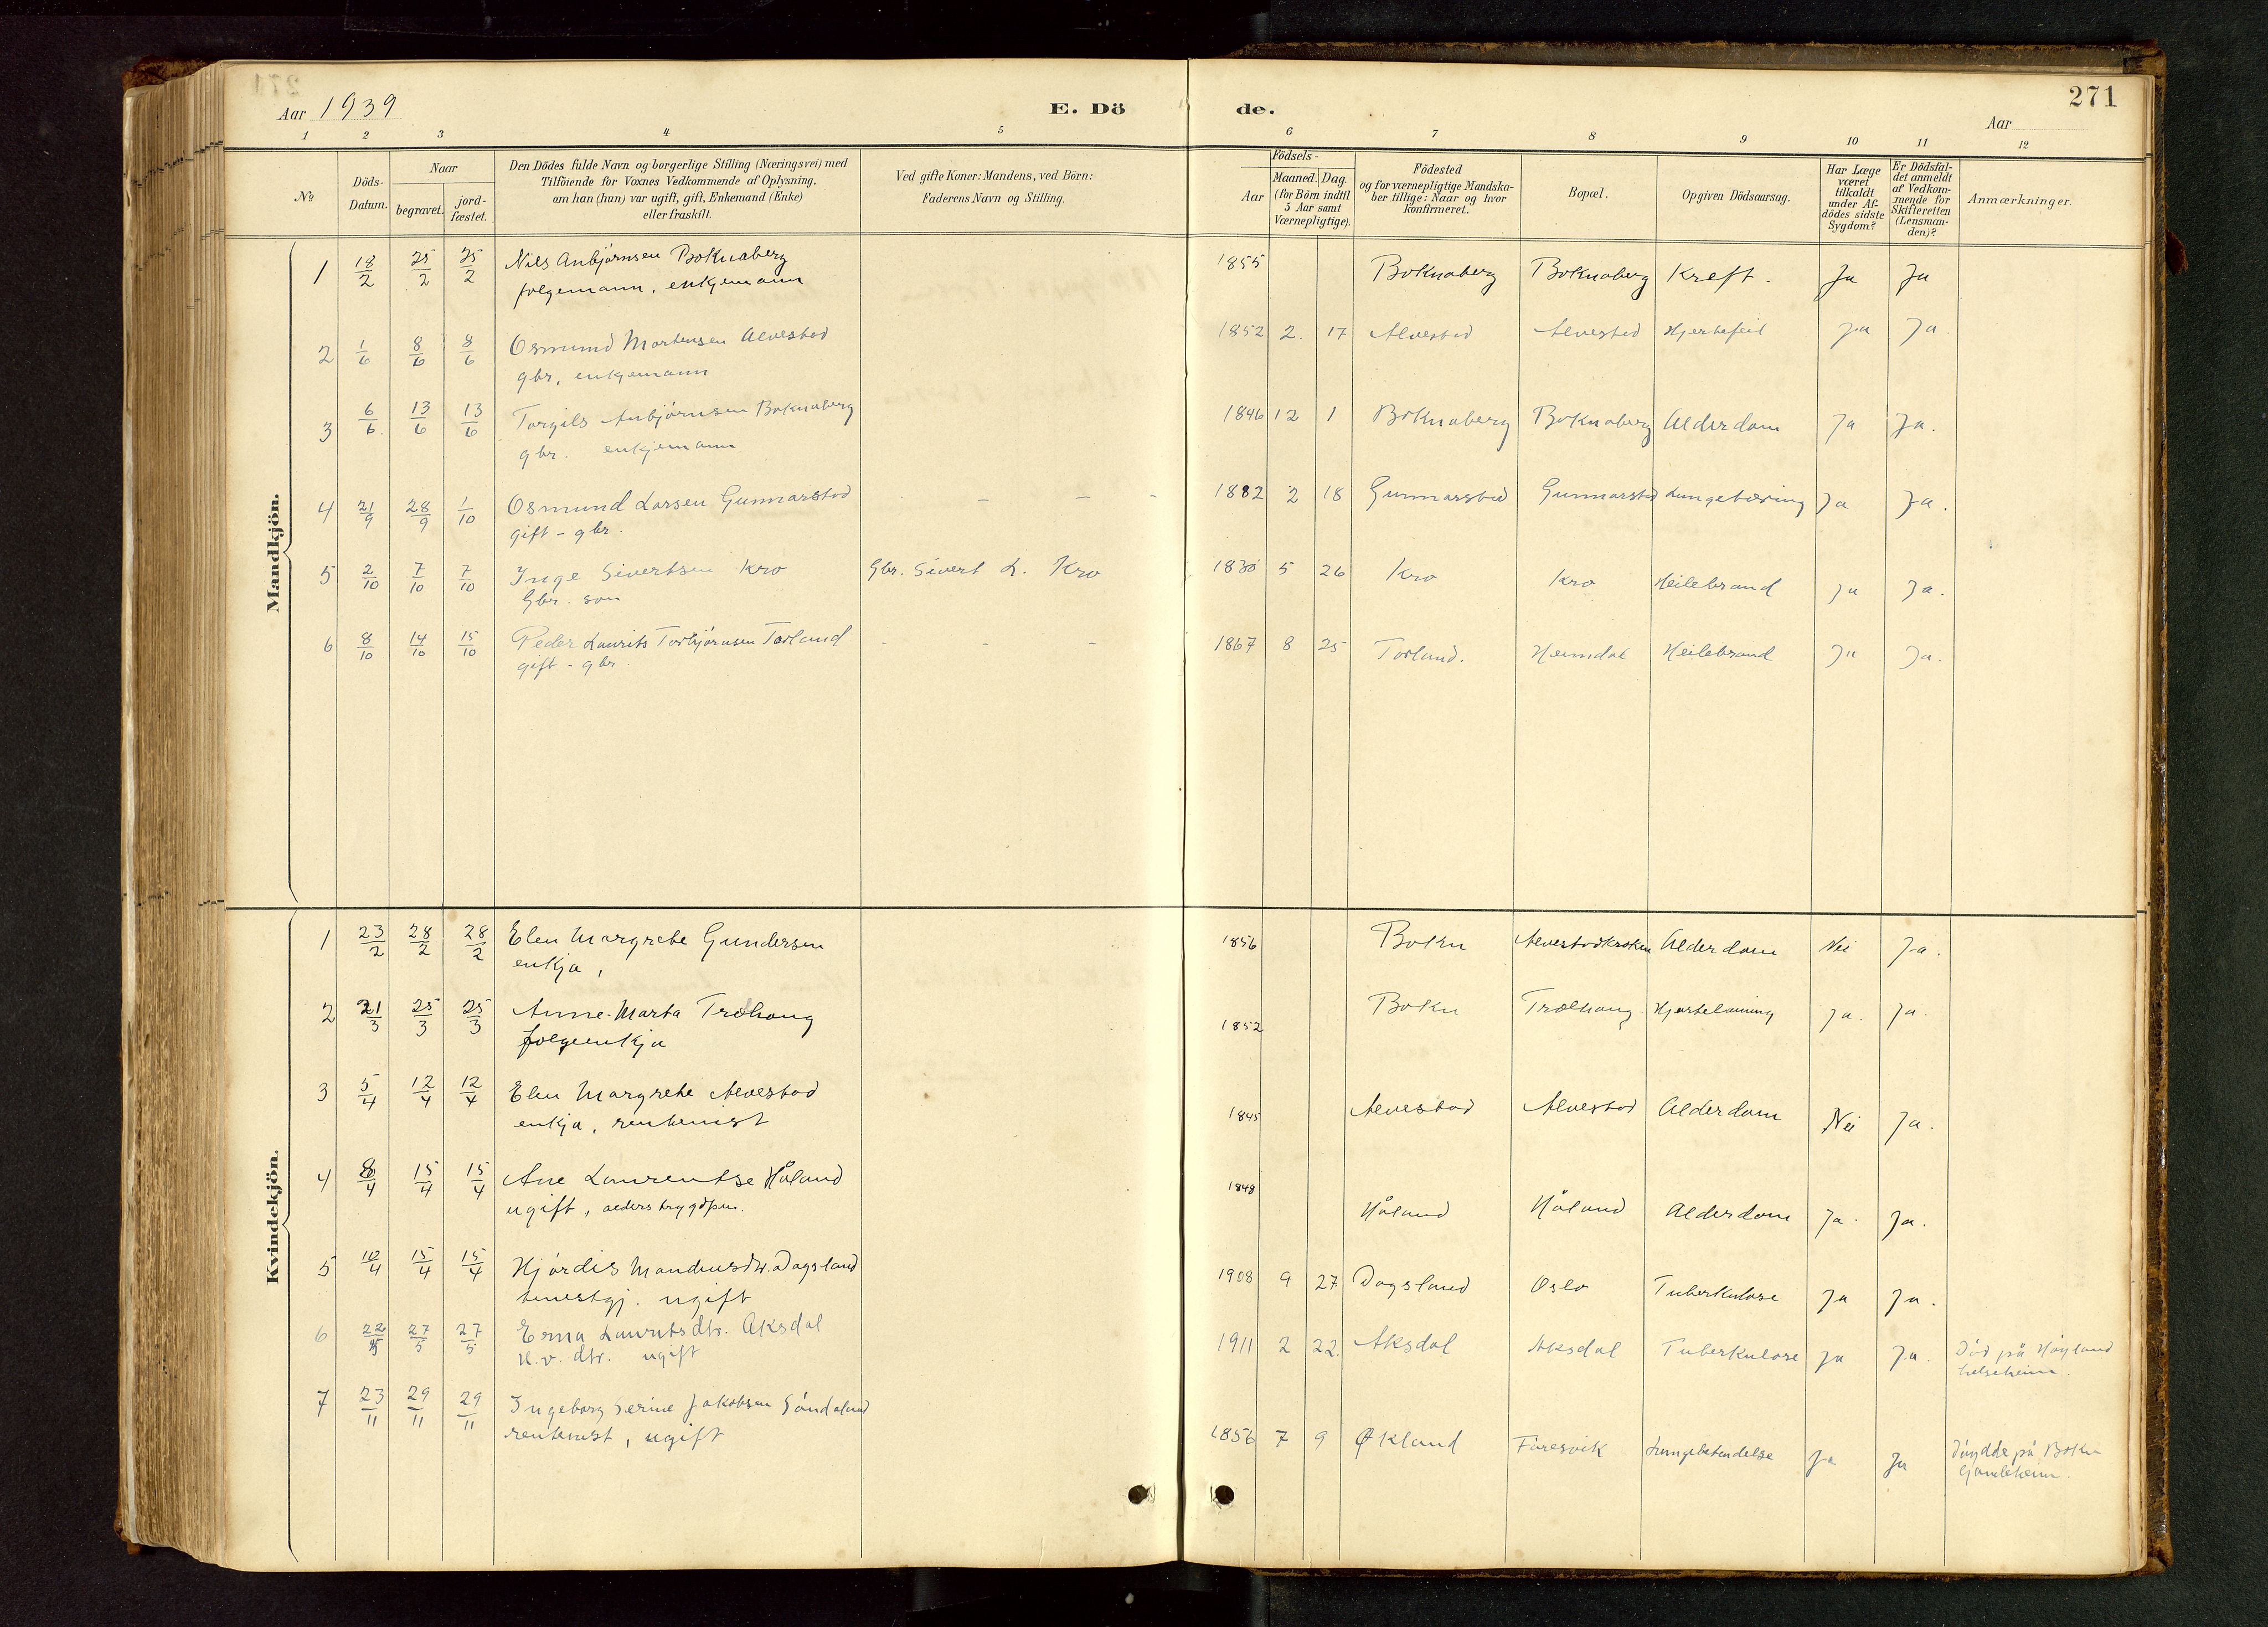 271
Aar 1939
E. Dö
de.
Aar
1 2 3 4 5 6 7 8 9 10 11 12
No
Döds-Datum.
Naar
begravet.
jord-fæstet.
Den Dödes fulde Navn og borgerlige Stilling (Næringsvei) med
Tilföiende for Voxnes Vedkommende af Oplysning,
om han (hun) var ugift, gift, Enkemand (Enke)
eller fraskilt.
Ved gifte Koner: Mandens, ved Börn:
Faderens Navn og Stilling.
Födsels-
Aar
Maaned. Dag.
(for Börn indtil
5 Aar samt
Værnepligtige).
Födested
og for værnepligtige Mandska-
ber tillige: Naar og hvor
konfirmeret.
Bopæl.
Opgiven Dödsaarsag.
Har Læge
været
tilkaldt
under Af-
dödes sidste
Sygdom?
Er Dödsfal-
det anmeldt
af Vedkom-
mende for
Skifteretten
(Lensman-
den)?
Anmærkninger.
Mandkjön.
1 18/2 25/2 25/2 Nils Anbjørnsen Boknaberg 1855 Boknaberg Boknaberg Kreft. Ja Ja
folgemann, enkjemann
2 1/6 8/6 8/6 Osmund Mortensen Alvestad 1852 2. 17 Alvestad Alvestad Hjertefeil Ja Ja.
gbr, enkjemann
3 6/6. 13/6 13/6 Torgils Anbjørnsen Boknaberg 1846 12 1 Boknaberg Boknaberg Alderdom Ja Ja.
gbr. enkjemann
4 21/9 28/9 1/10 Osmund Larsen Gunnarstad - - - - 1882 2 18 Gunnarstad Gunnarstad Lungetæring Ja Ja.
gift - gbr.
5 2/10 7/10 7/10 Inge Sivertsen Kro Gbr. Sivert L. Kro 5 26 Kro Kro Heilebrand Ja Ja.
Gbr. son
6 8/10 14/10 15/10 Peder Laurits Torbjørnsen Torland - - - 1867 8 25 Torland. Heimdal Heilebrand Ja Ja.
gift - gbr.
Kvindekjön.
1 23/2 28/2 28/2 Elen Margrete Gundersen 1856 Bokn Alvestadkroken Alderdom Nei Ja.
enkja,
2 21/3 25/3 25/3 Anne-Marta Trælhaug 1852 Bokn Trælhaug Hjertelamning Ja. Ja.
folgeenkja
3 5/4 12/4 12/4 Elen Margrete Alvestad 1845 Alvestad Alvestad Alderdom Nei Ja.
enkja, rentenist
4 8/4 15/4 15/4 Ane Laurentse Håland 1848 Håland Håland Alderdom Ja. Ja.
ugift, alderstrygdpen.
5 10/4 15/4 15/4 Hjørdis Mandiusdtr. Dagsland 1908 9 27 Dagsland Oslo Tuberkulose Ja Ja.
tenestgj. ugift
6 22/5 27/5 27/5 Erna Lauritsdtr. Aksdal 1911 2 22. Aksdal Aksdal Tuberkulose Ja Ja. Död på Høyland
H.v. dtr. ugift helseheim.
7 23/11 29/11 29/11 Ingeborg Serine Jakobsen 1856 7 9 Økland Føresvik Lungebetendelse Ja Ja Døydde på Bokn
rentenist, ugift Gamleheim.